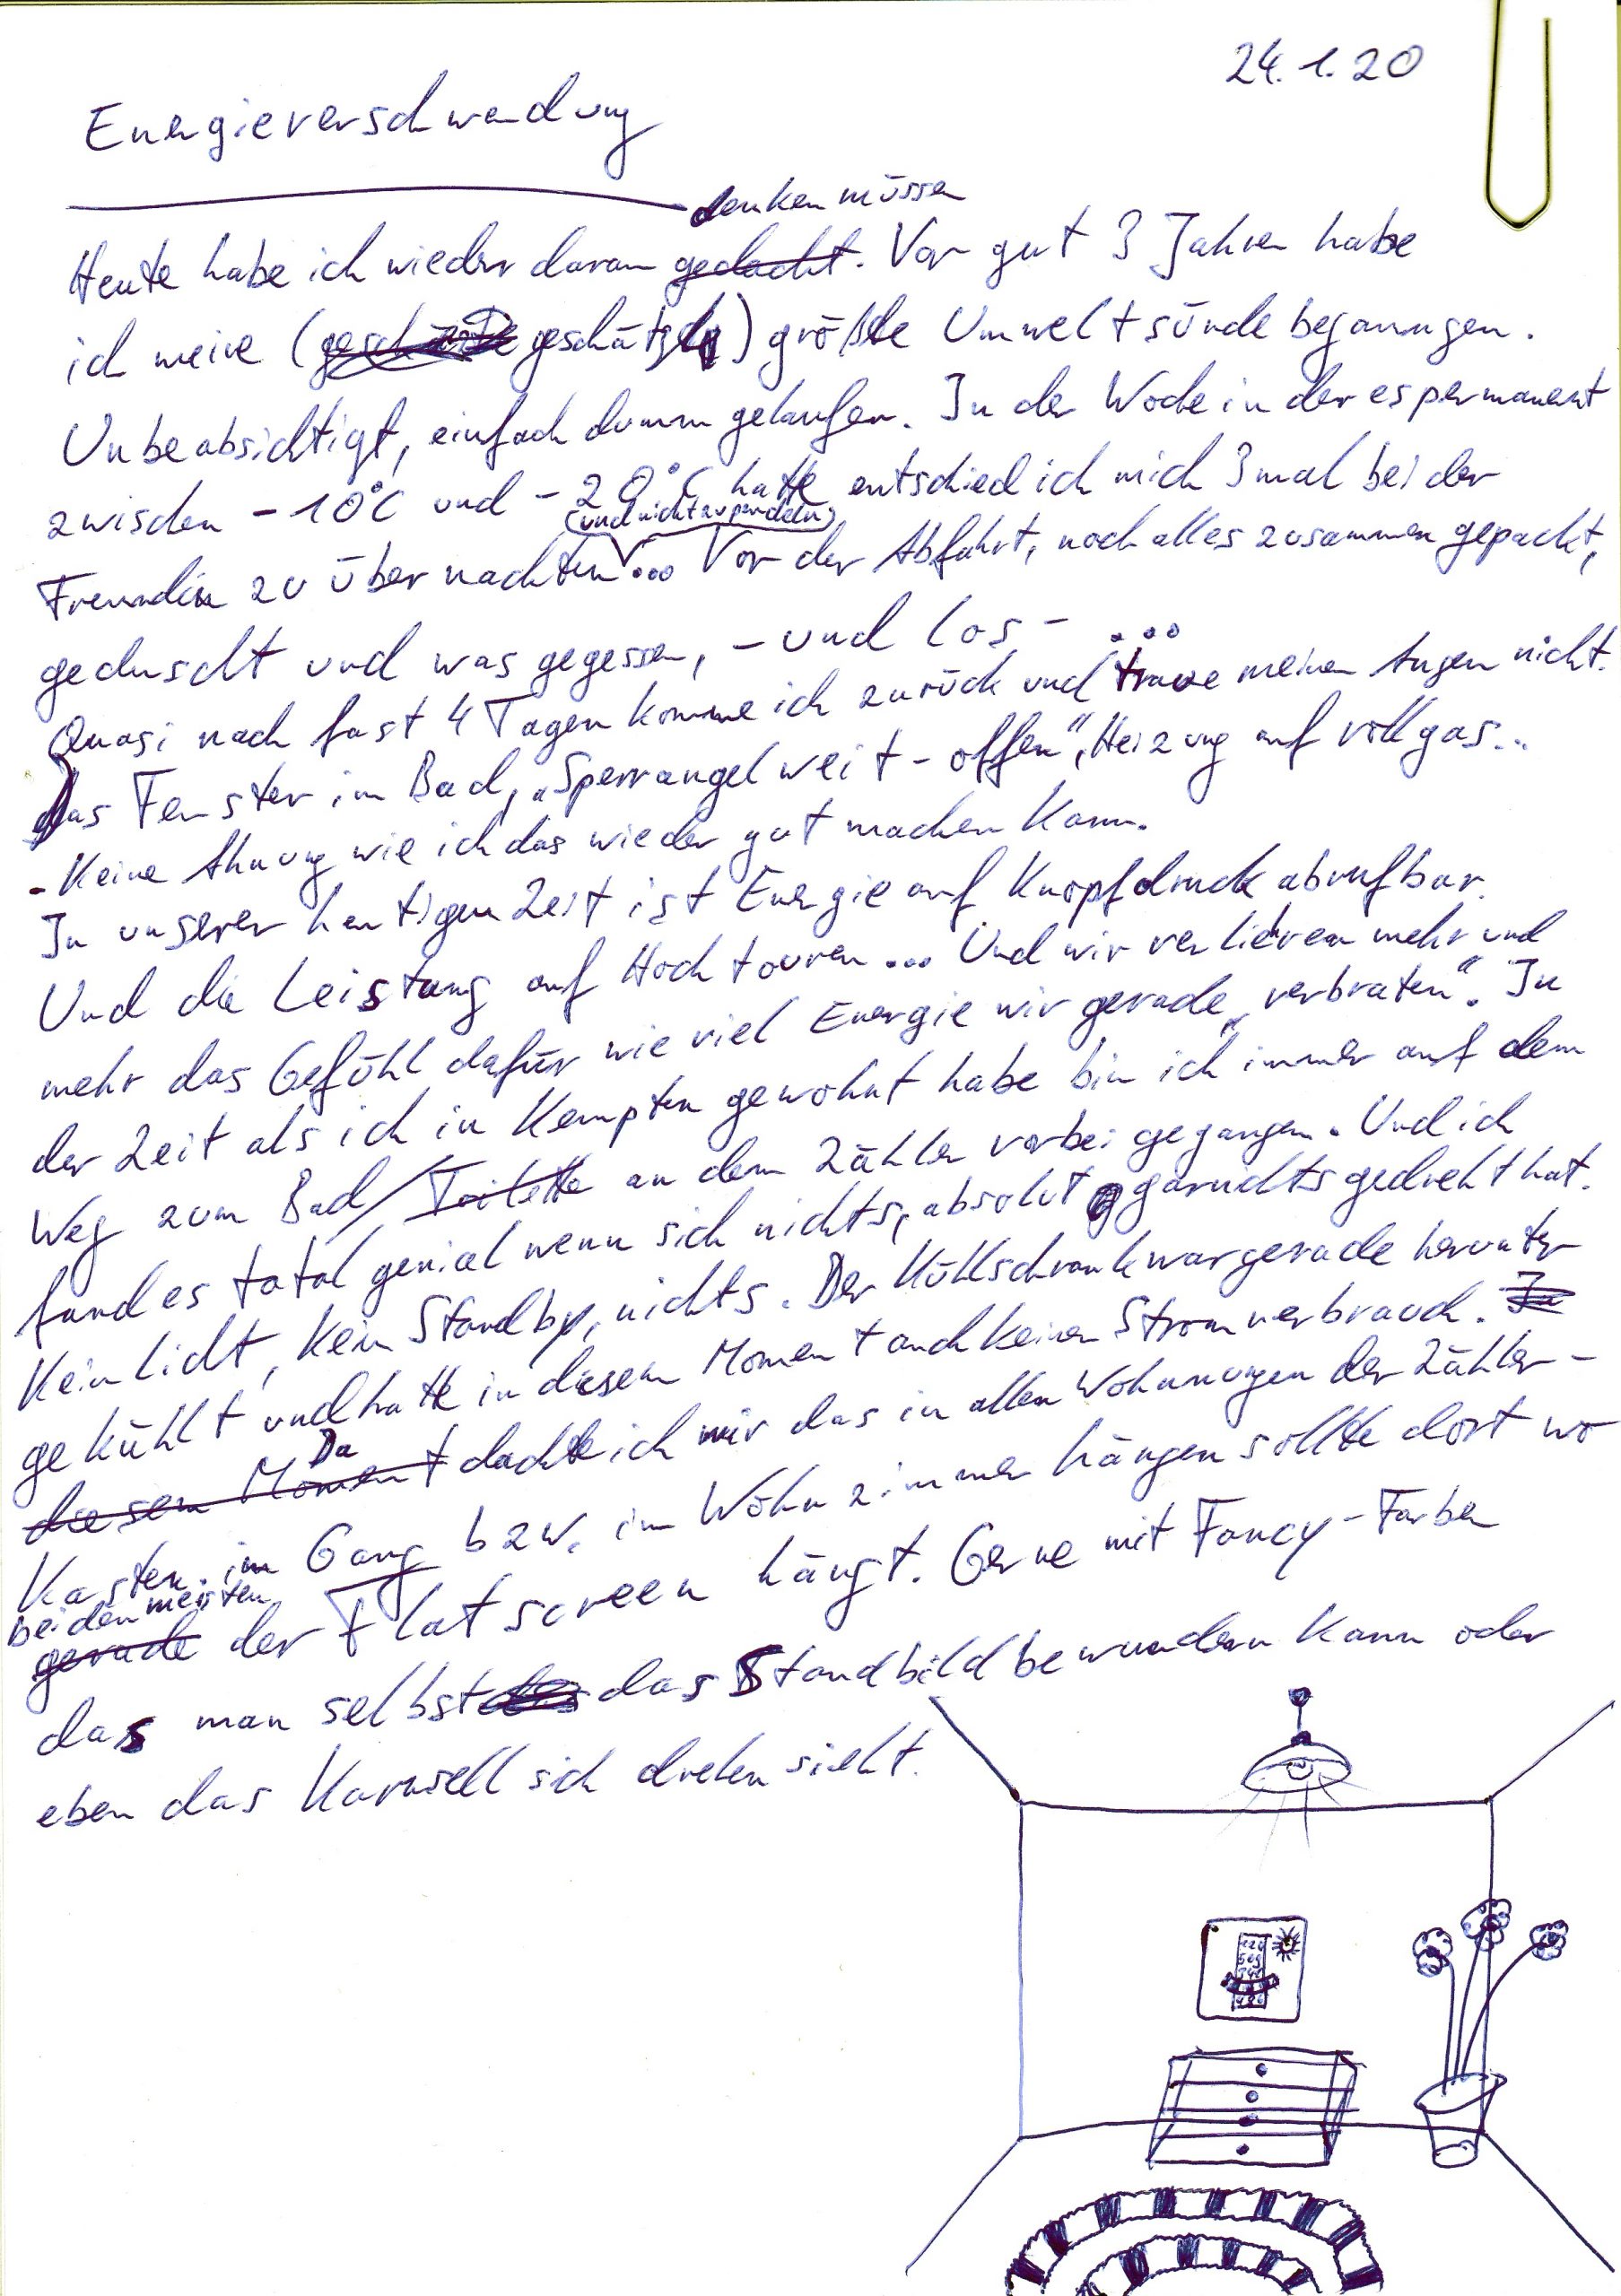 24.1.20
Energieverschwendung
denken müssen
Heute habe ich wieder daran gedacht. Vor gut 3 Jahren habe
ich meine (geschätzt) größte Umweltsünde begangen.
Unbeabsichtigt, einfach dumm gelaufen. In der Woche in der es permanent
zwischen -10°C und -20°C hatte entschied ich mich 3mal bei der
(und nicht zu pendeln)
Freundin zu übernachten... Vor der Abfahrt, noch alles zusammen gepackt,
geduscht und was gegessen, - und los - ...
Quasi nach fast 4 Tagen komme ich zurück und traue meinen Augen nicht.
Das Fenster im Bad, „Sperrangelweit-offen", Heizung auf vollgas...
- Keine Ahnung wie ich das wieder gut machen kann.
In unserer heutigen Zeit ist Energie auf Knopfdruck abrufbar.
Und die Leistung auf Hochtouren... Und wir verlieren mehr und
mehr das Gefühl dafür wie viel Energie wir gerade „verbraten". In
der Zeit als ich in Kempten gewohnt habe bin ich immer auf dem
Weg zum Bad/Toilette an dem Zähler vorbei gegangen. Und ich
fand es total genial wenn sich nichts, absolut garnichts gedreht hat.
Kein Licht, kein Standby, nichts. Der Kühlschrank war gerade herunter
gekühlt und hatte in diesem Moment auch keinen Stromverbrauch. In
diesem Moment Da dachte ich mir das in allen Wohnungen der Zähler-
Kasten im Gang bzw. im Wohnzimmer hängen sollte dort wo
bei den meisten
gerade der Flatscreen hängt. Gerne mit Fancy-Farben
das man selbst das Standbild bewundern kann oder
eben das Karusell sich drehen sieht.